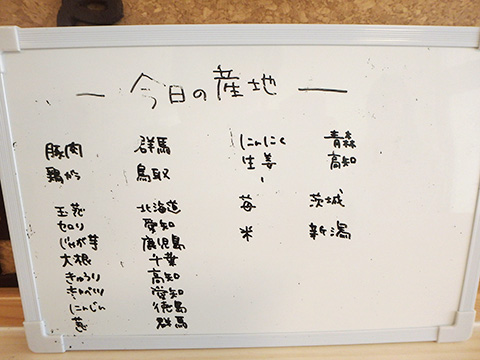 今日の産地
豚肉 群馬
鶏がら 鳥取
玉葱 北海道
セロリ 愛知
じゃが芋 鹿児島
大根 千葉
きゅうり 高知
キャベツ 愛知
にんじん 徳島
葱 群馬
にんにく 青森
生姜 高知
苺 茨城
米 新潟